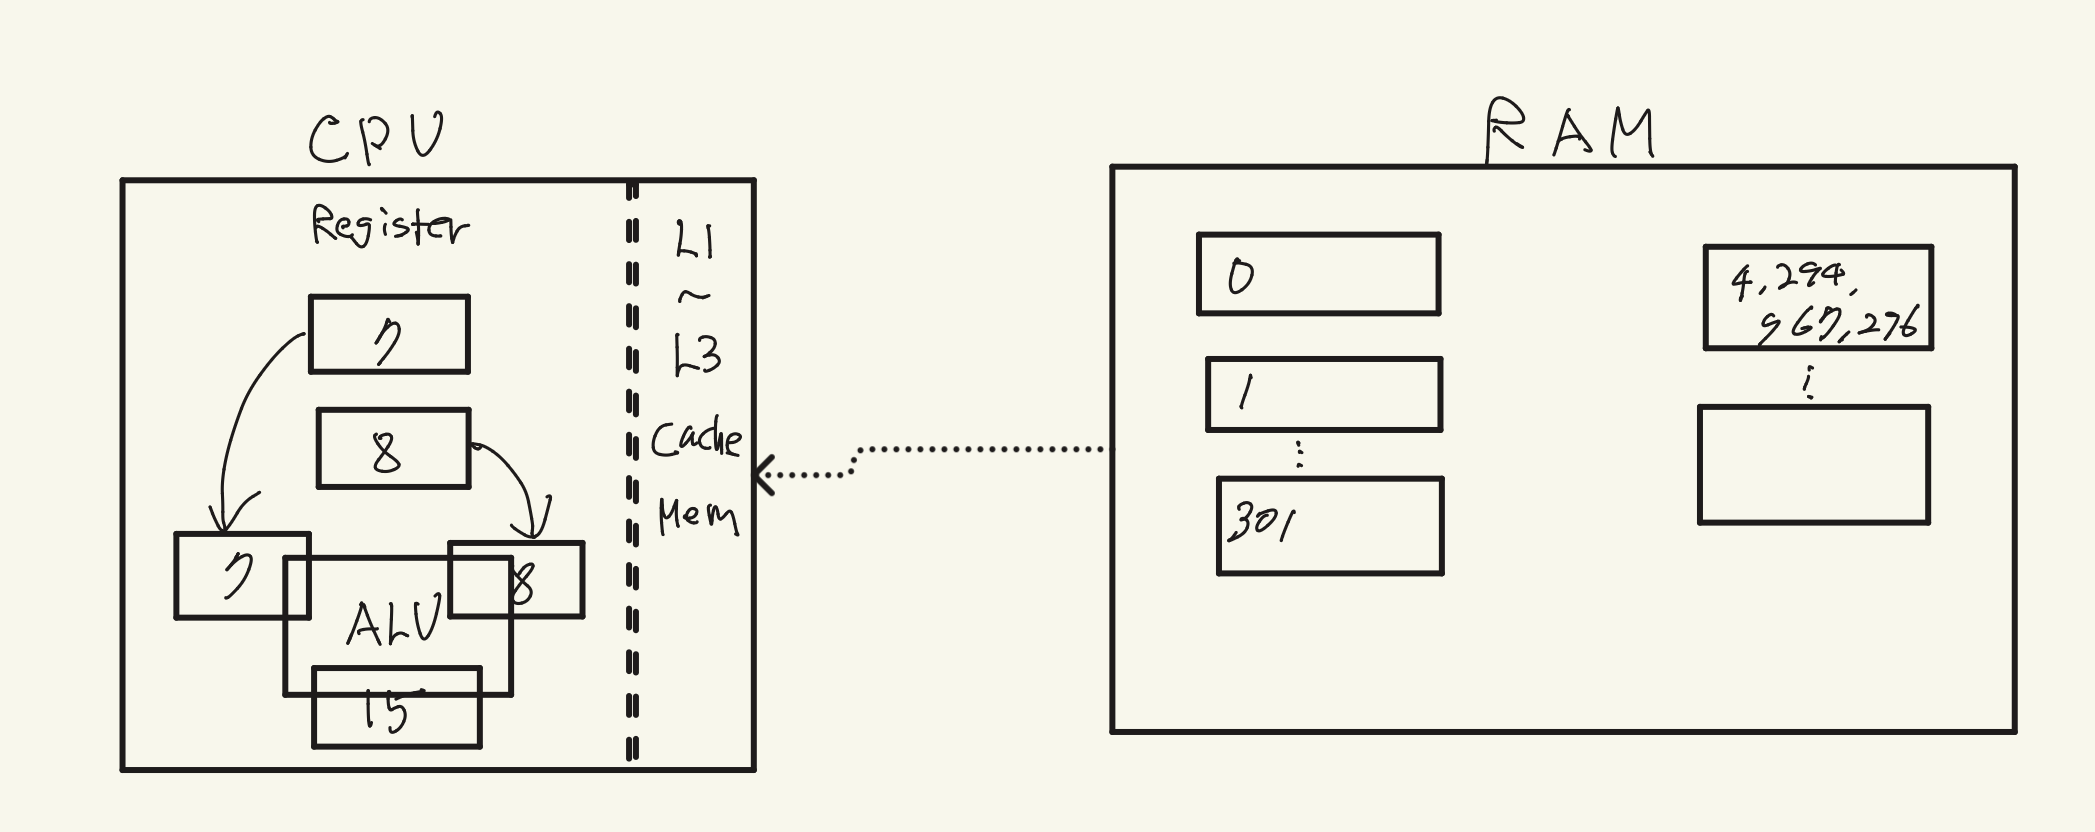 CPU
Register
7
8
7
8
ALU
15
L1
~
L3
Cache
Mem
RAM
0
1
⋮
301
4,294,
967,276
⋮